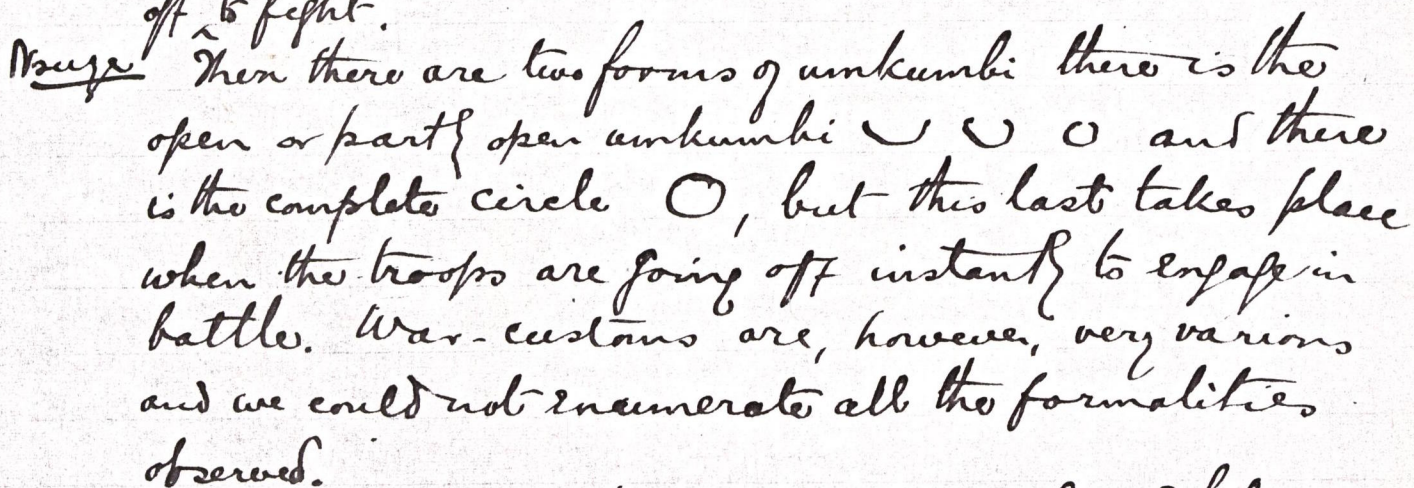 off to fight.
Nsuze Then there are two forms of umkumbi there is the
open or partly open umkumbi ◡ ◡ ○ and there
is the complete circle O, but this last takes place
when the troops are going off instantly to engage in
battle. War-customs are, however, very various
and we could not enumerate all the formalities
observed.